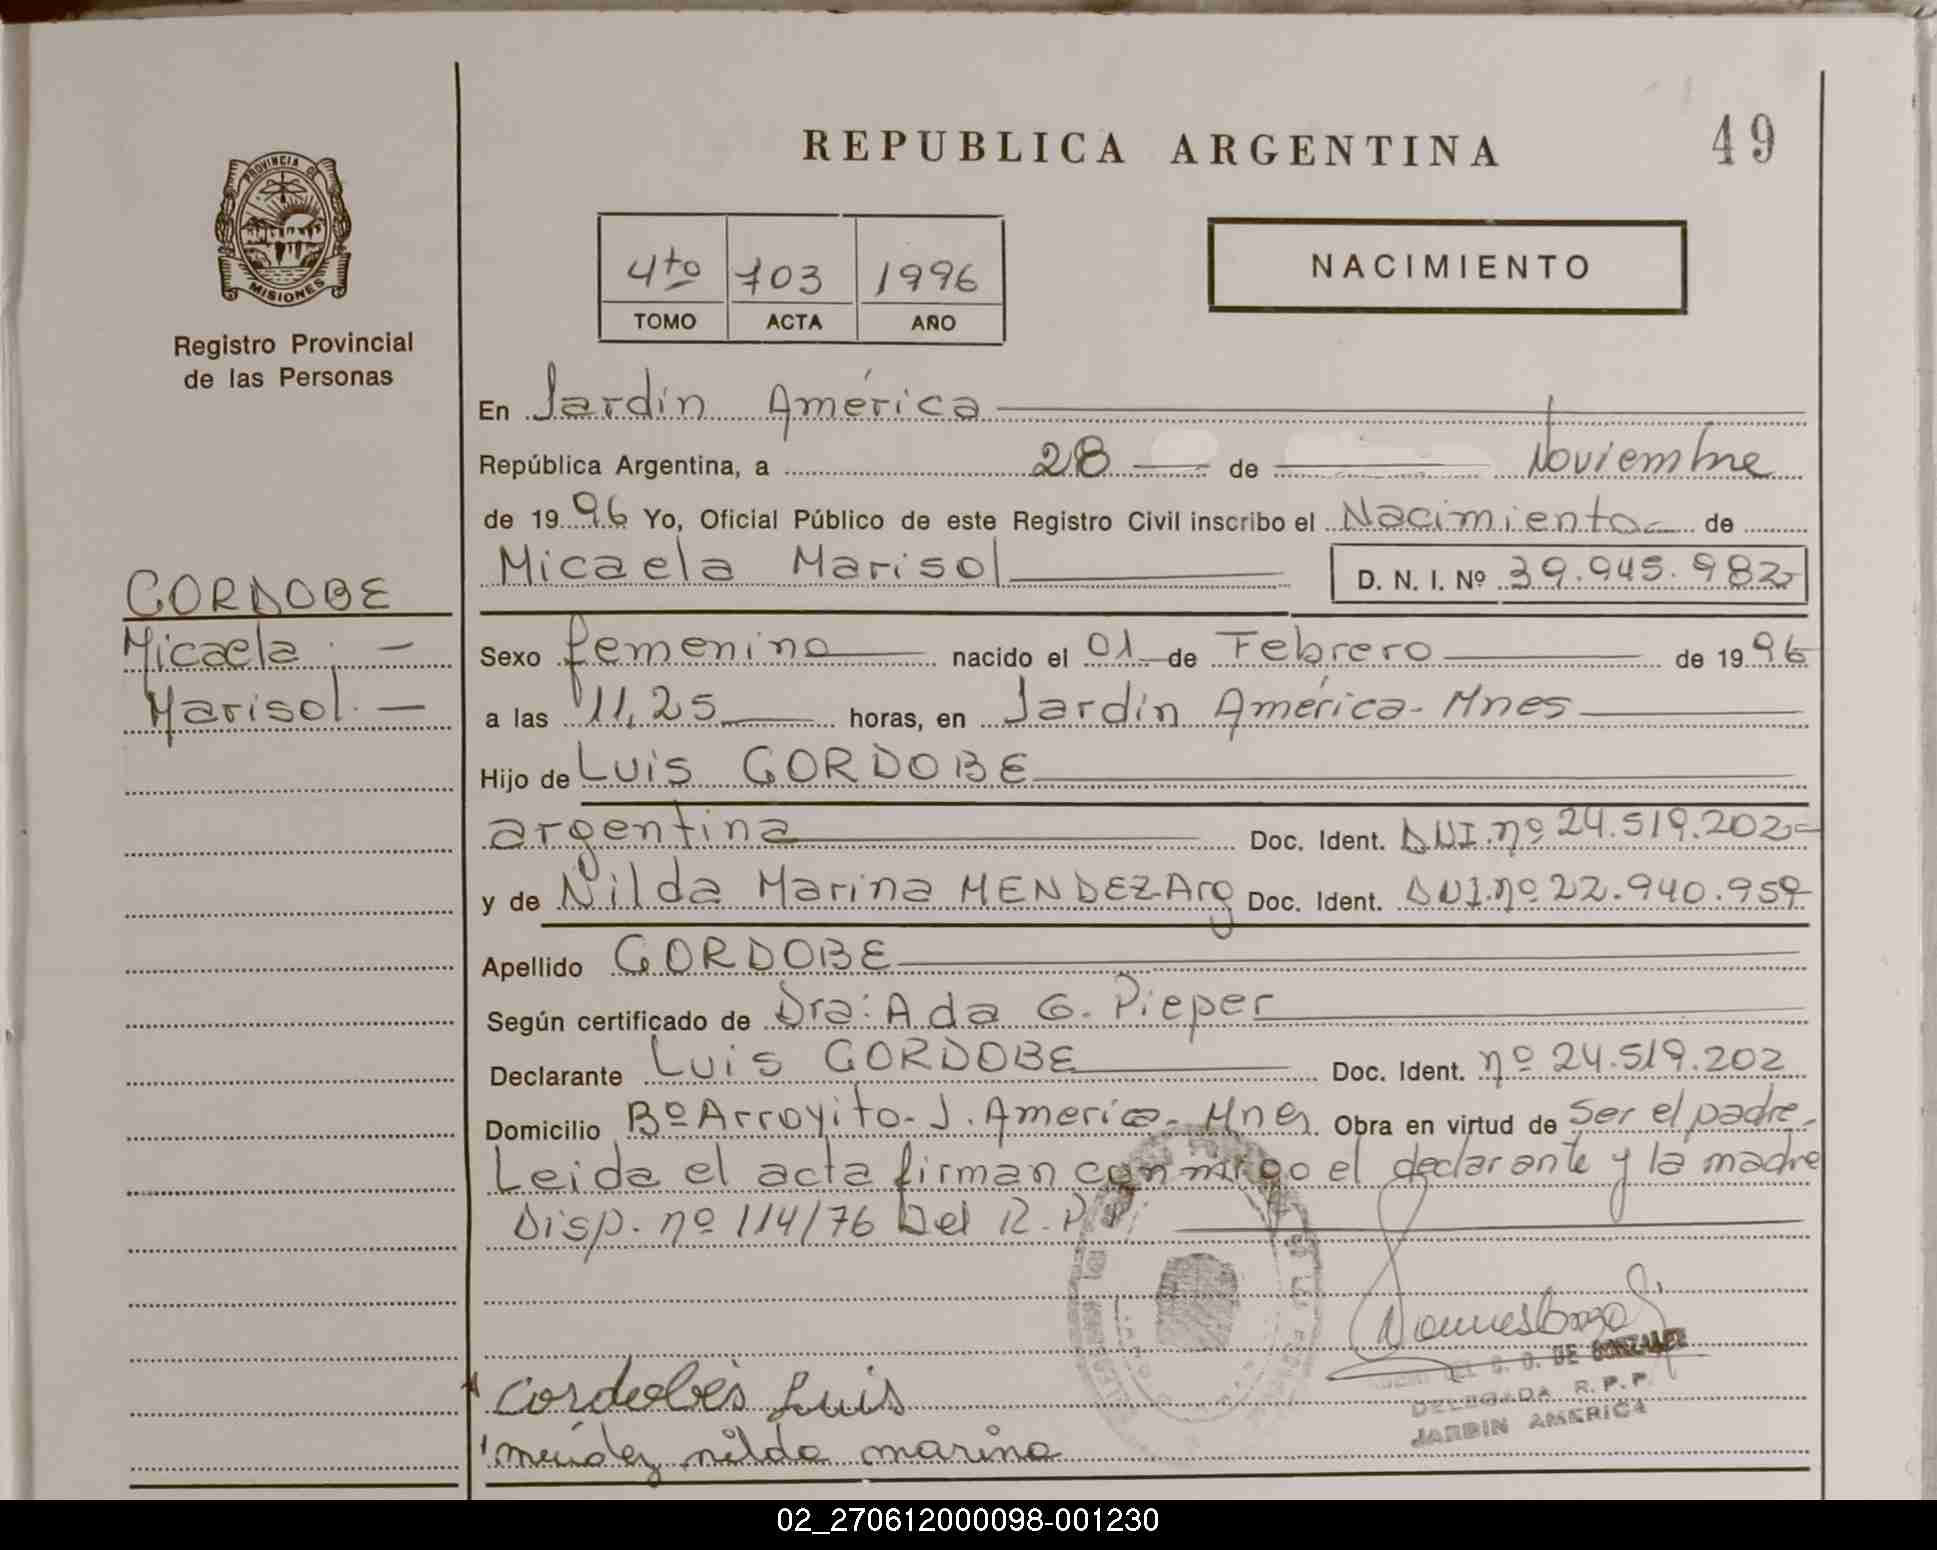 REPUBLICA ARGENTINA
49
PROVINCIA DE
MISIONES
Registro Provincial
de las Personas
4to 703 1996
TOMO ACTA AÑO
NACIMIENTO
En Jardín América
República Argentina, a 28 de Noviembre
de 1996 Yo, Oficial Público de este Registro Civil inscribo el Nacimiento de
Micaela Marisol D. N. I. Nº 39.945.982
CORDOBE
Micaela
Marisol
Sexo femenino nacido el 01 de Febrero de 1996
a las 11,25 horas, en Jardín América- Mnes
Hijo de Luis CORDOBE
argentina Doc. Ident. DNI.nº 24.519.202
y de Nilda Marina MENDEZ-Arg Doc. Ident. DNI.nº 22.940.959
Apellido CORDOBE
Según certificado de Dra: Ada G. Pieper
Declarante Luis CORDOBE Doc. Ident. nº 24.519.202
Domicilio Bº Arroyito- J. America- Mnes. Obra en virtud de ser el padre.
Leida el acta firman conmigo el declarante y la madre
Disp. nº 114/76 Del R.P.P
DE GONZALEZ
DELEGADA R.P.P.
JARDIN AMERICA
cordobes Luis
mendez nilda marina
02_270612000098-001230